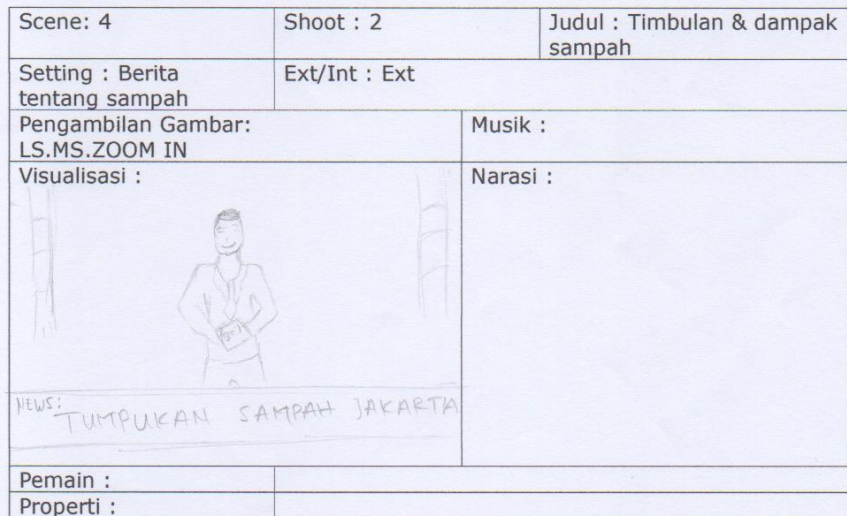 Scene: 4
Shoot : 2
Judul : Timbulan & dampak
sampah
Setting : Berita
tentang sampah
Ext/Int : Ext
Pengambilan Gambar:
LS.MS.ZOOM IN
Musik :
Visualisasi :
Narasi :
NEWS:
TUMPUKAN SAMPAH JAKARTA
Pemain :
Properti :